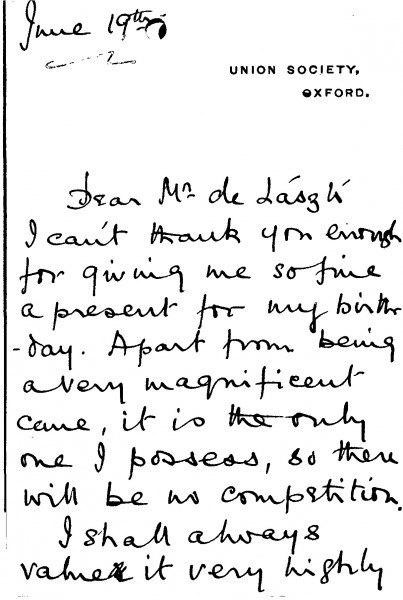 June 19th
UNION SOCIETY,
OXFORD.
Dear Mr de László
I can't thank you enough
for giving me so fine
a present for my birth
-day. Apart from being
a very magnificent
cane, it is the only
one I possess, so there
will be no competition.
I shall always
value it very highly